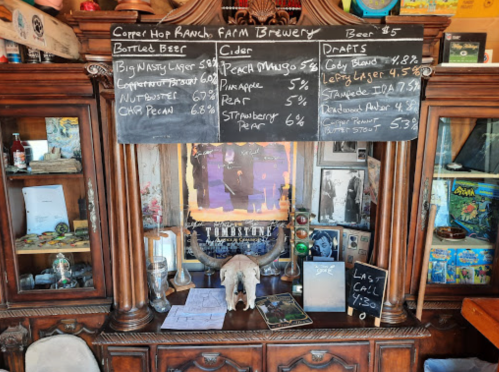 Copper Hop Ranch, Farm Brewery Beer $5
Bottled Beer
Big Nasty Lager 5.8%
Coppernut Brown 6.0%
Nutbuster 6.7%
Char Pecan 6.8%
Cider
Peach Mango 5%
Pineapple 5%
Pear 5%
Strawberry 6%
Pear
Drafts
Cody Blond 4.8%
Lefty Lager 4.5%
Stampede IPA 7.5%
Deadwood Amber 4.3%
Peanut
Butter Stout 5.3%
TOMBSTONE
LAST
CALL
4:30